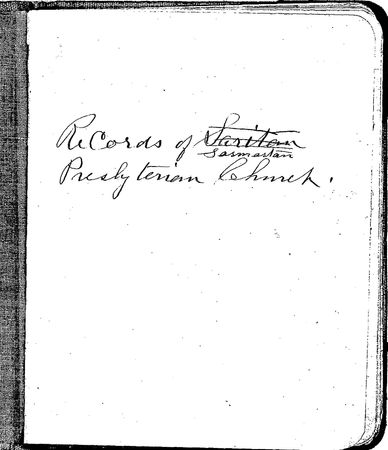 Records of Saritan
Sarmatan
Presbyterian Church.